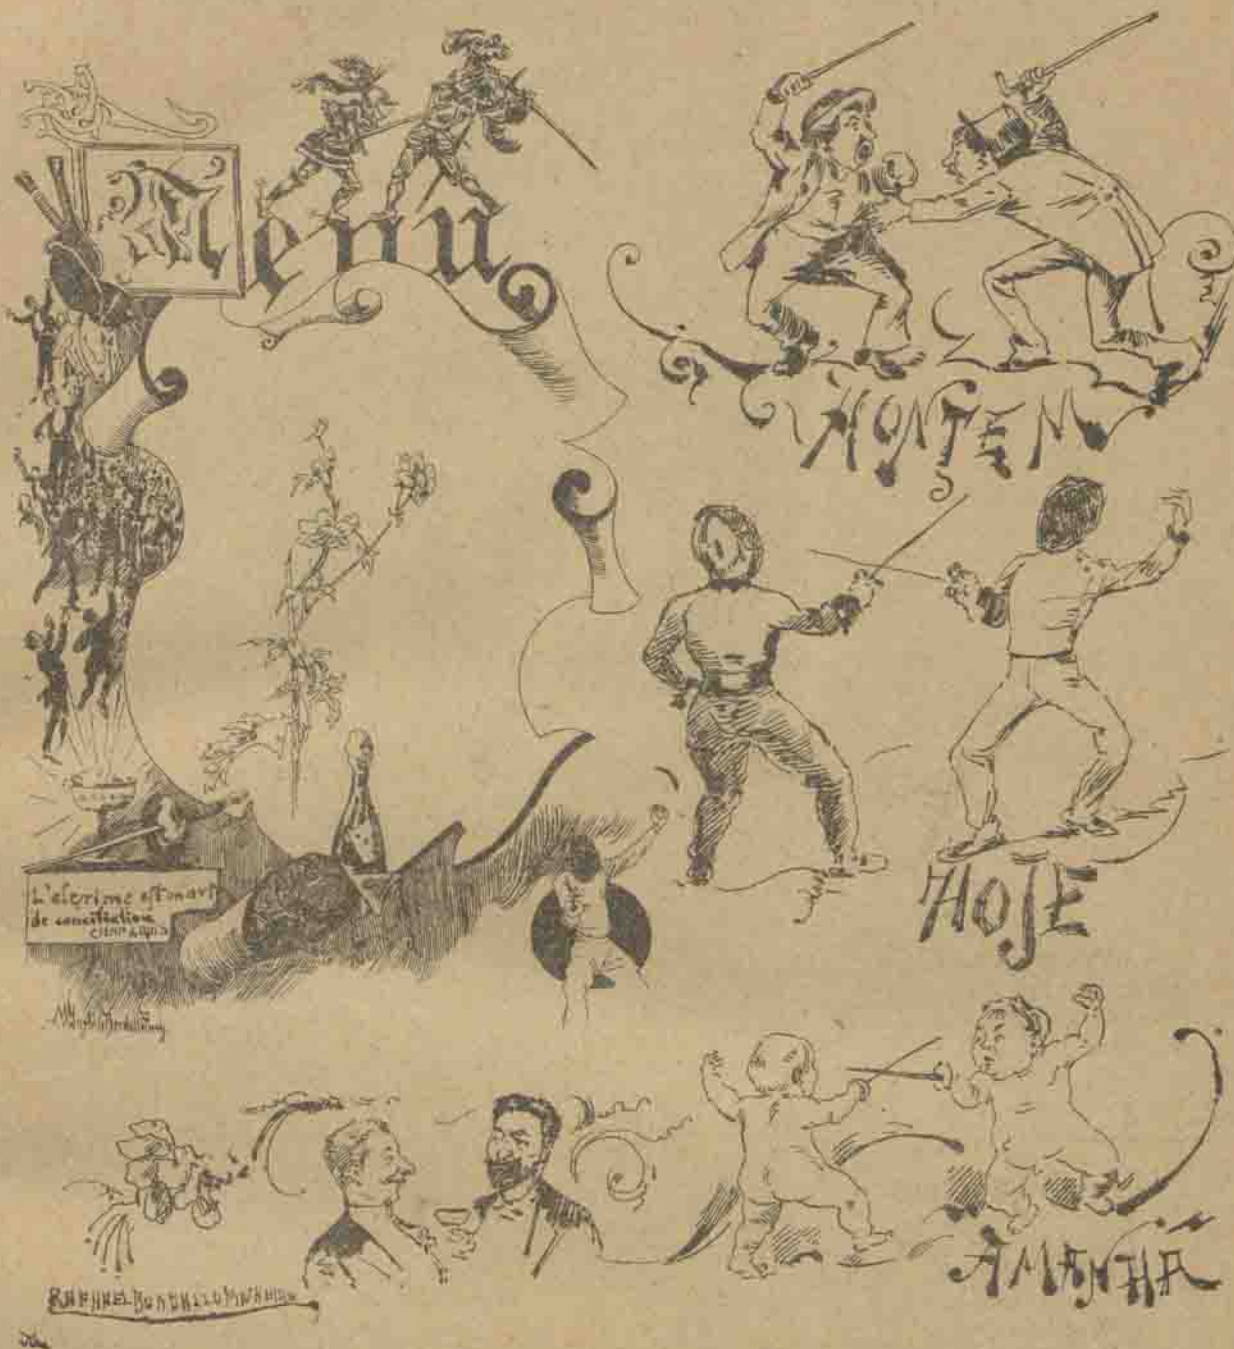 Menu
HONTEM
HOJE
L'escrime est un art
de conciliation
AMANHÃ
RAPHAEL BORDALLO PINHEIRO